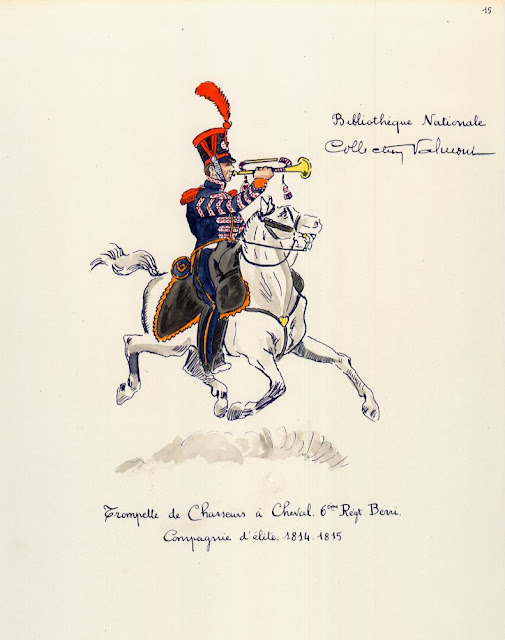 15
Bibliothèque Nationale
Collection Valmont
Trompette de Chasseurs à Cheval. 6ème Régt Berri.
Compagnie d'élite. 1814-1815